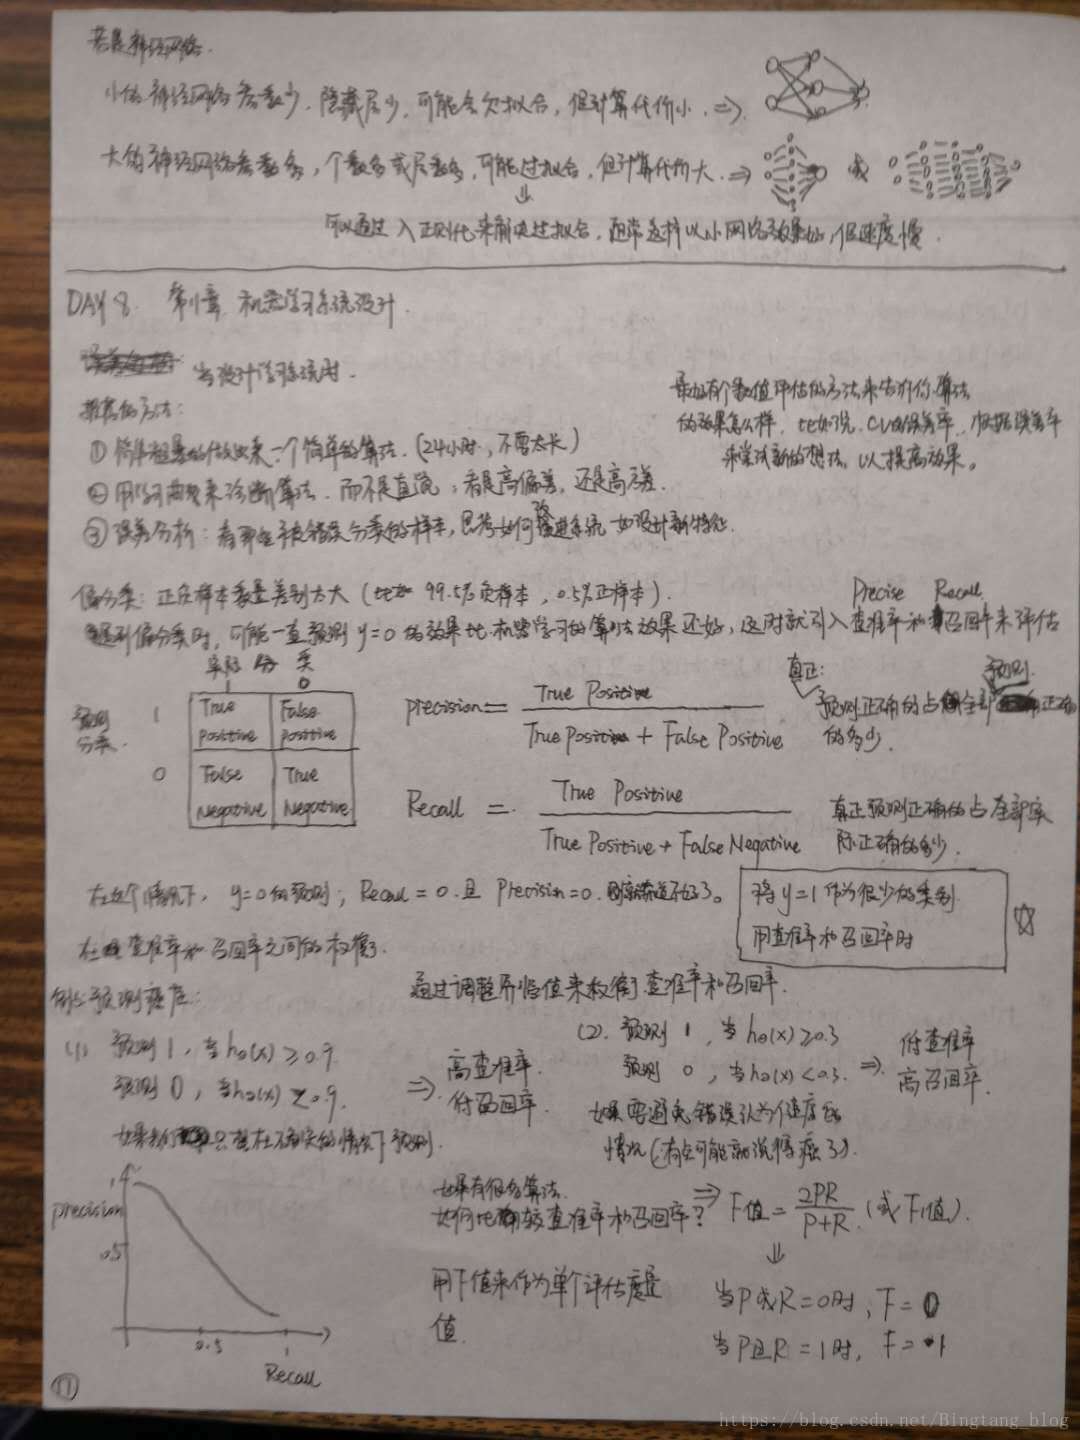 若是神经网络.
小的神经网络参数少,隐藏层少,可能会欠拟合,但计算代价小. ⇒
大的神经网络参数多,个数多或层数多,可能过拟合,但计算代价大. ⇒ 或
⇓
可以通过 λ 正则化来解决过拟合,通常这样以小网络效果好,但速度慢.
DAY 8. 第11章 机器学习系统设计.
当设计学习系统时.
推荐的方法:
① 简单粗暴的做出来一个简单的算法. (24小时,不要太长)
② 用学习曲线来诊断算法.而不是直觉,看是高偏差,还是高方差.
③ 误差分析:看那些被错误分类的样本,思考如何改进系统 如设计新特征.
最好有个数值评估的方法来告诉你,算法
的效果怎么样,比如说,CV的误差率,根据误差率
来尝试新的想法,以提高效果。
偏分类:正负样本数量差别太大(比如 99.5%负样本,0.5%正样本).
Precise Recall
遇到偏分类时,可能一直预测 y=0 的效果比机器学习的算法效果还好,这时就引入查准率和召回率来评估
实际 分 类
1 0
预测
分类.
1 True Positive False Positive
0 False Negative True Negative
precision = True Positive / True Positive + False Positive
真正: 预测
预测正确的占全部正确
的多少.
Recall = True Positive / True Positive + False Negative
真正预测正确的占全部实
际正确的多少.
在这个情况下, y=0的预测; Recall = 0.且 Precision=0. 不好了。
将 y=1 作为很少的类别
用查准率和召回率时
在查准率和召回率之间的权衡.
通过调整界临值来权衡查准率和召回率.
例如预测癌症:
(1) 预测 1, 当 hθ(x) ≥ 0.9
预测 0, 当 hθ(x) < 0.9.
⇒ 高查准率.
低召回率.
如果我们只想在确实的情况下预测.
(2). 预测 1, 当 hθ(x) ≥ 0.3
预测 0, 当 hθ(x) < 0.3.
⇒ 低查准率
高召回率.
如果要避免错误认为健康的
情况(有点可能就说得癌了).
1
precision
0.5
0.5 1
Recall
如果有很多算法.
如何比较查准率和召回率? ⇒ F值 = 2PR / P+R (或 F1值).
⇓
用F值来作为单个评估度量
值.
当P或R=0时, F=0
当P且R=1时, F=1
17
https://blog.csdn.net/Bingtang_blog